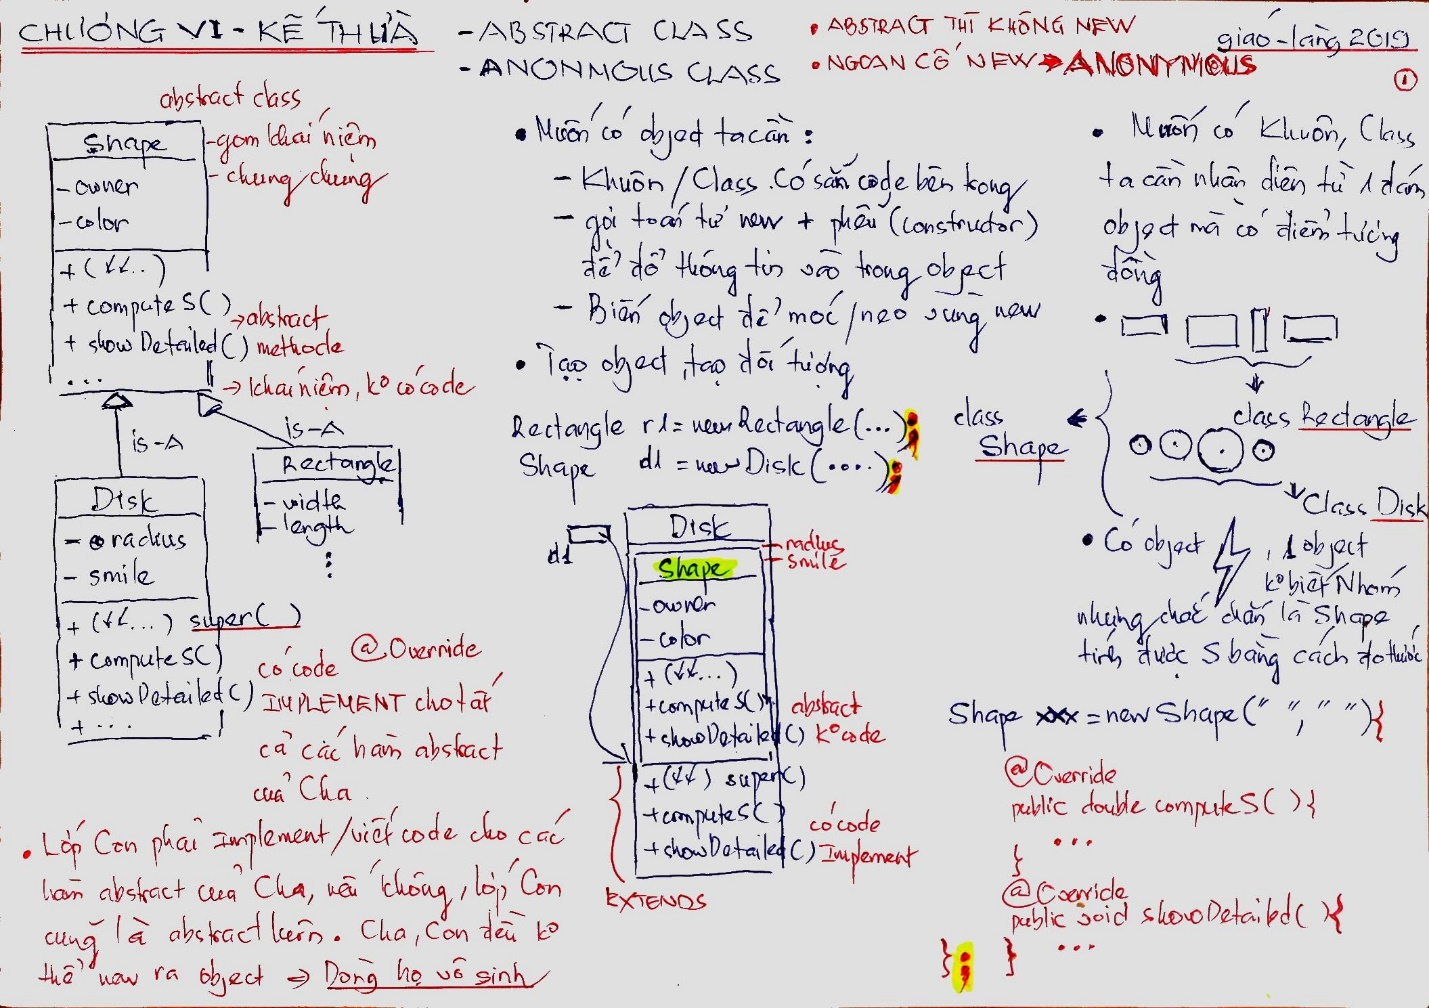 CHƯƠNG VI - KẾ THỪA
- ABSTRACT CLASS
- ANONMOUS CLASS
• ABSTRACT THÌ KHÔNG NEW
• NGOAN CỐ NEW → ANONYMOUS
giáo-làng 2019
1
abstract class
- gom khái niệm
- chung chung
Shape
- owner
- color
+ (↓↓..)
+ computeS()
+ showDetailed()
...
→ abstract
methode
→ khái niệm, k° có code
is-A
is-A
Rectangle
- width
- length
⋮
Disk
- radius
- smile
+ (↓↓...) super( )
+ computeS()
+ showDetailed()
+ ...
có code @Override
IMPLEMENT cho tất
cả các hàm abstract
của Cha
• Lớp Con phải Implement/viết code cho các
hàm abstract của Cha, nếu không, lớp Con
cũng là abstract luôn. Cha, Con đều k°
thể new ra object → Dòng họ vô sinh
• Muốn có object ta cần:
- Khuôn/Class. Có sẵn code bên trong
- gọi toán tử new + phễu (constructor)
để đổ thông tin vào trong object
- Biến object để móc/neo vùng new
• Tạo object, tạo đối tượng
Rectangle r1 = new Rectangle(...);
Shape d1 = new Disk(....);
d1
Disk
- radius
- smile
Shape
- owner
- color
+ (↓↓...)
+ computeS()
+ showDetailed()
abstract
k° code
+ (↓↓) super()
+ computeS()
+ showDetailed()
có code
Implement
EXTENDS
• Muốn có Khuôn, Class
ta cần nhận diện từ 1 đám
object mà có điểm tương
đồng
•
class Rectangle
class
Shape
Class Disk
• Có object, 1 object
k° biết Nhóm
nhưng chắc chắn là Shape
tính được S bằng cách đo thước
Shape xxx = new Shape(" ", " "){
@Override
public double computeS( ){
...
}
@Override
public void showDetailed( ){
...
}
};